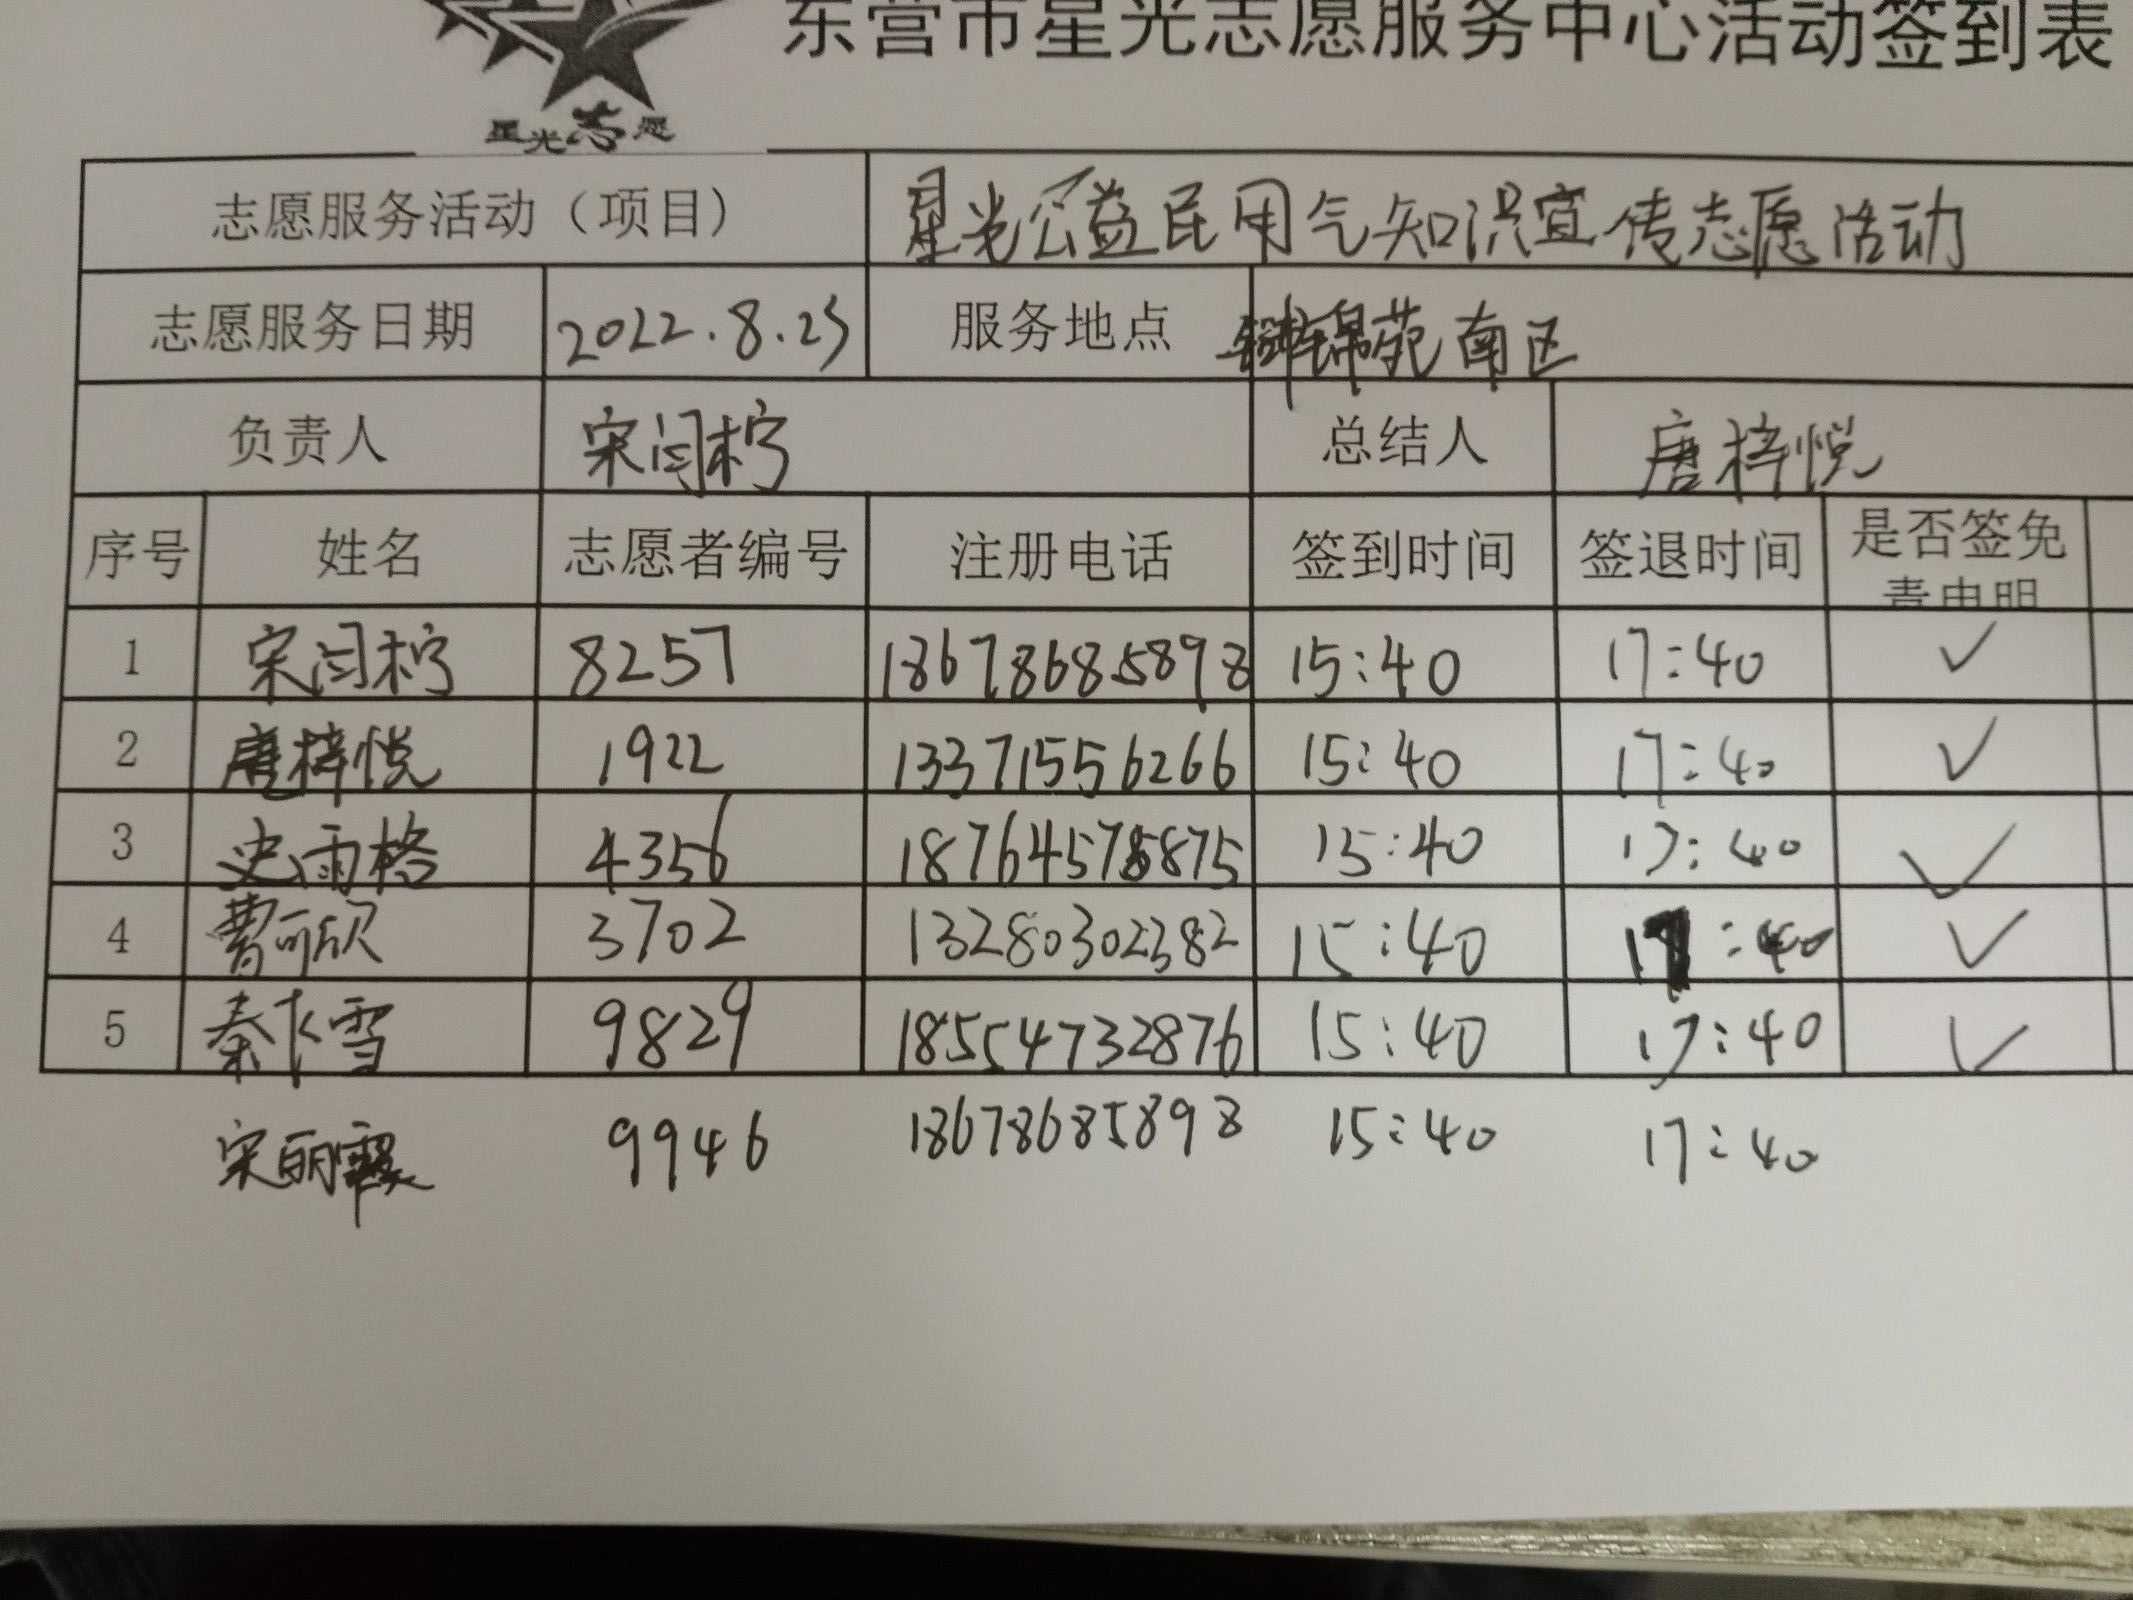 东营市星光志愿服务中心活动签到表
星光志愿
志愿服务活动（项目） 星光公益民用气知识宣传志愿活动
志愿服务日期 2022.8.25 服务地点 锦苑南区
负责人 宋闫柠 总结人 唐梓悦
序号 姓名 志愿者编号 注册电话 签到时间 签退时间 是否签免责申明
1 宋闫柠 8257 18678685898 15:40 17:40 ✓
2 唐梓悦 1922 13371556266 15:40 17:40 ✓
3 史雨格 4356 18764578875 15:40 17:40 ✓
4 曹可欣 3702 13280302382 15:40 17:40 ✓
5 秦卞雪 9829 18554732876 15:40 17:40 ✓
宋丽霞 9946 18678685898 15:40 17:40